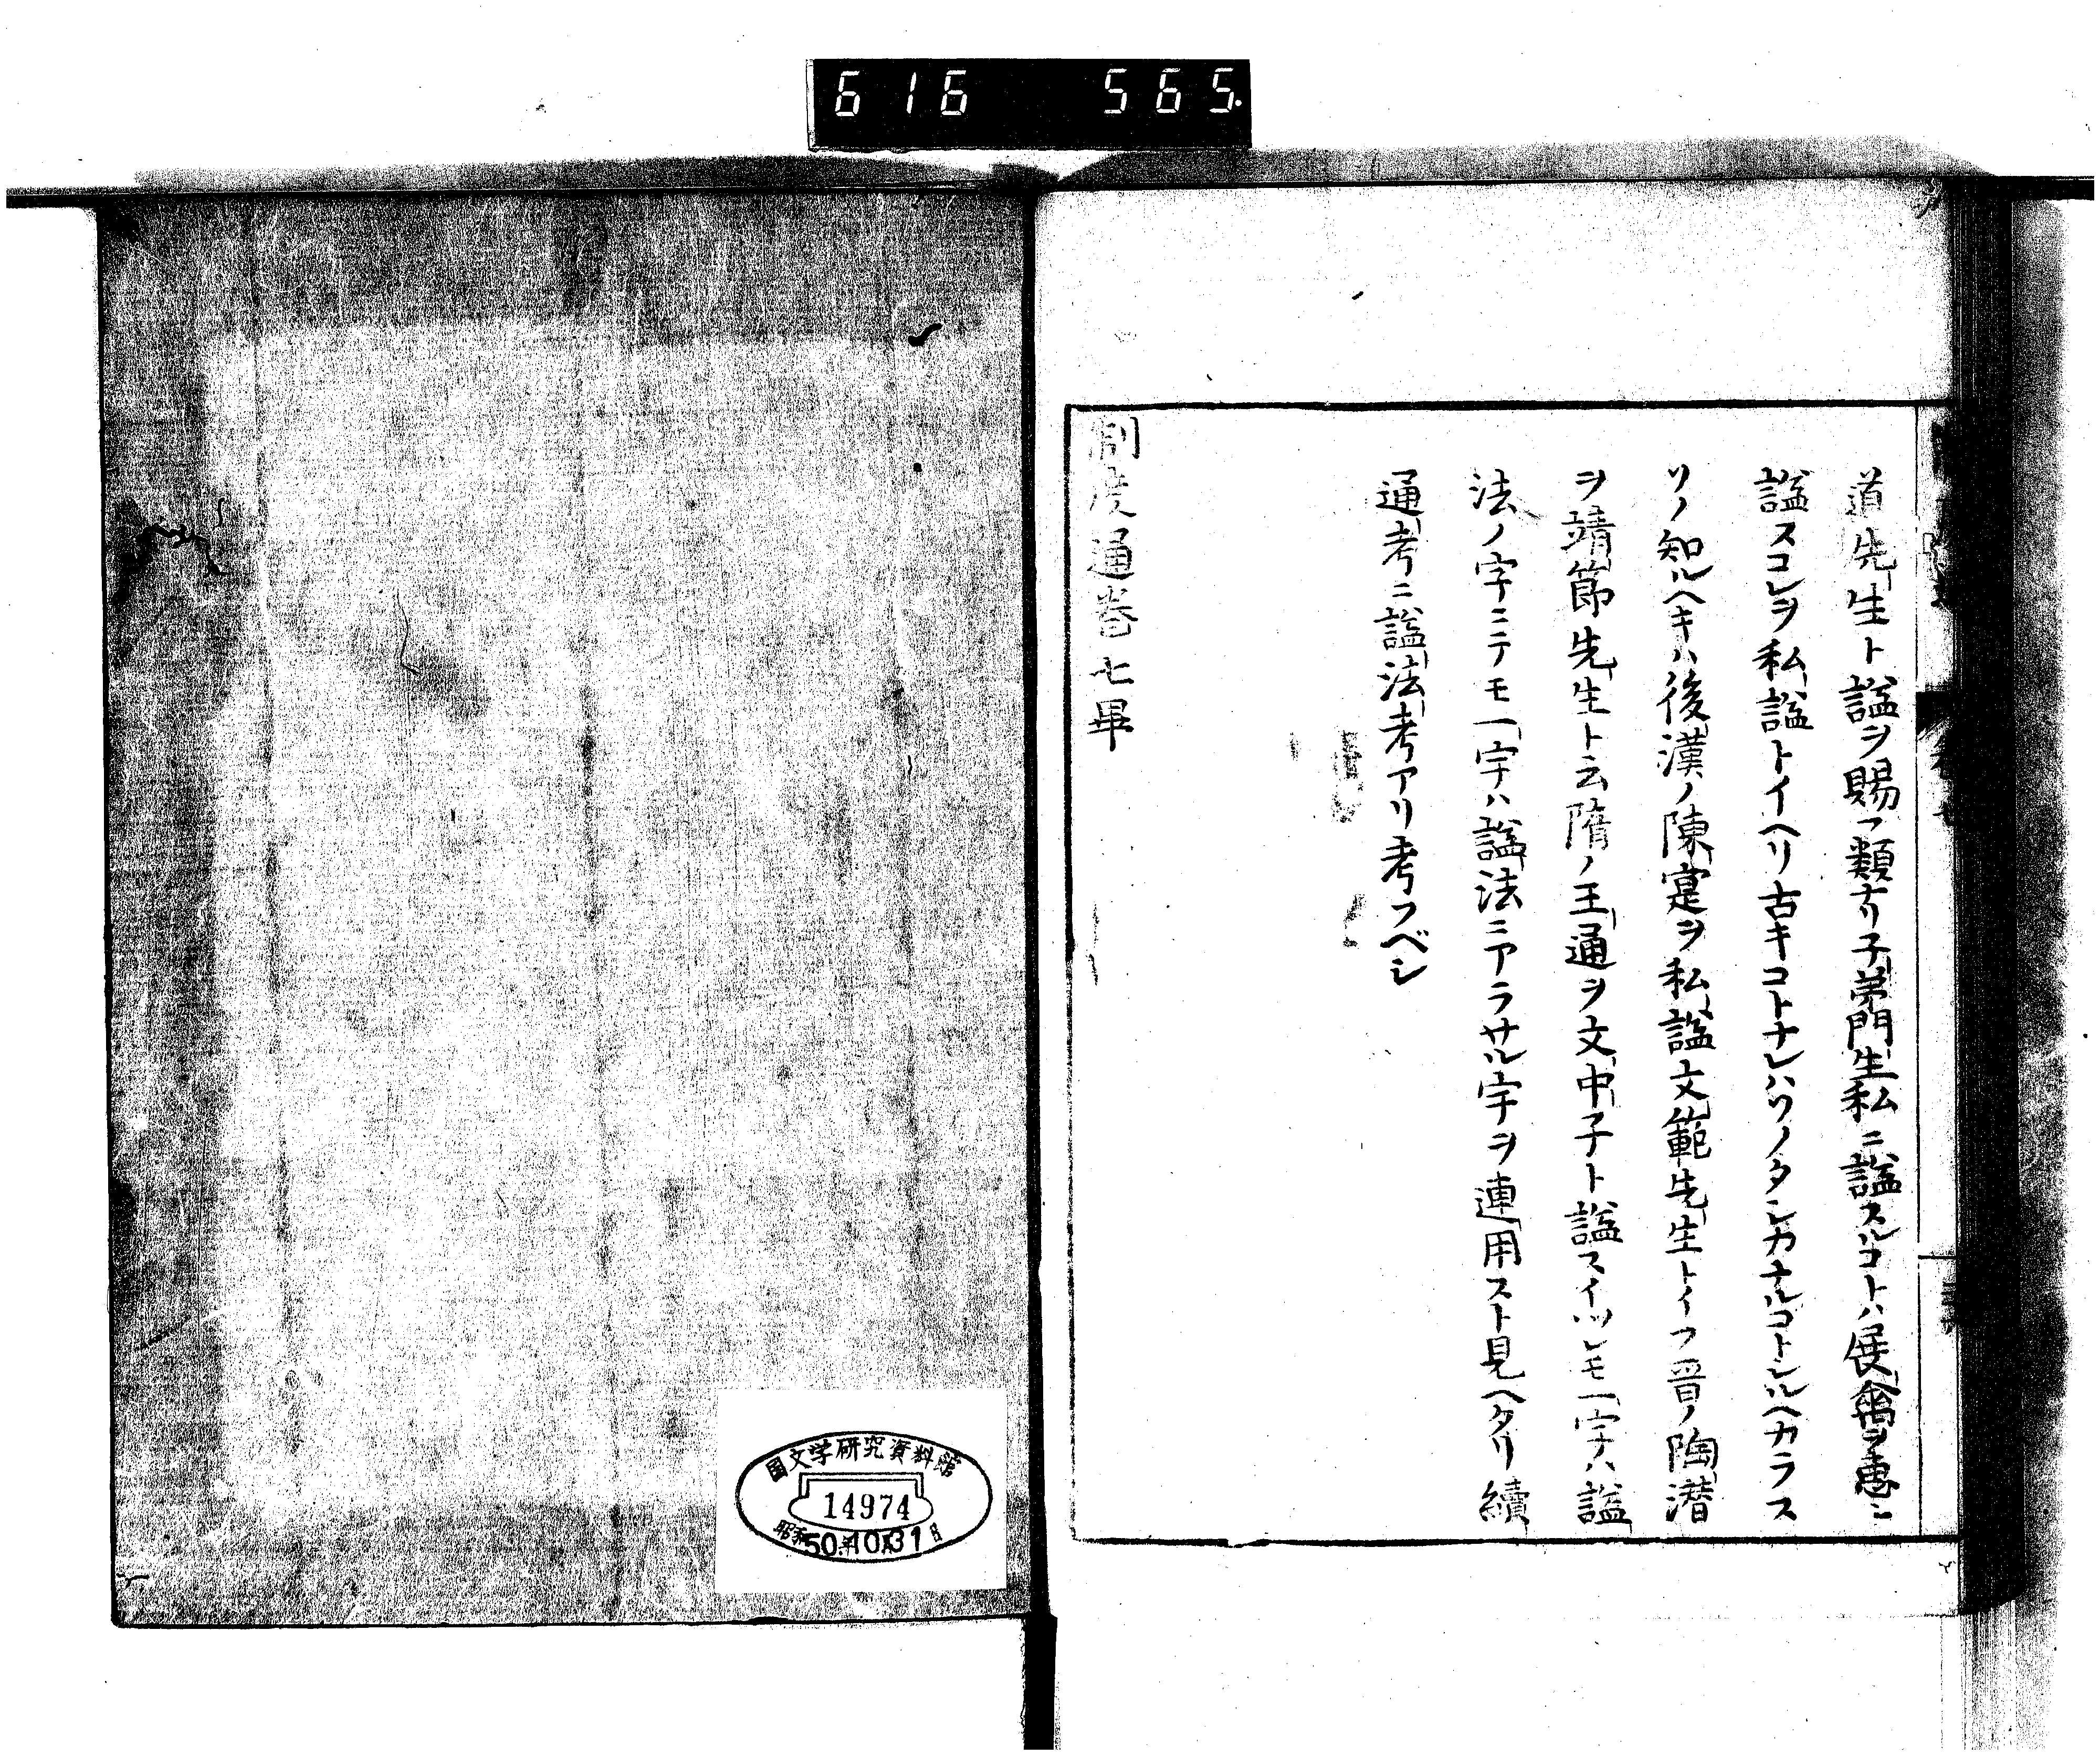 616 565.
道先生ト諡ヲ賜フ類ナリ子弟門生私ニ諡スルコトハ展禽ヲ恵ニ
諡スコレヲ私諡トイヘリ古キコトナレハソノタシカナルコトシルヘカラス
ソノ知ルヘキハ後漢ノ陳寔ヲ私諡文範先生トイフ晋ノ陶潜
ヲ靖節先生ト云隋ノ王通ヲ文中子ト諡スイツレモ一字ハ諡
法ノ字ニテモ一字ハ諡法ニアラサル字ヲ連用スト見ヘタリ續
通考ニ諡法考アリ考フベシ
制度通巻七畢
国文学研究資料館
14974
昭和50年10月31日